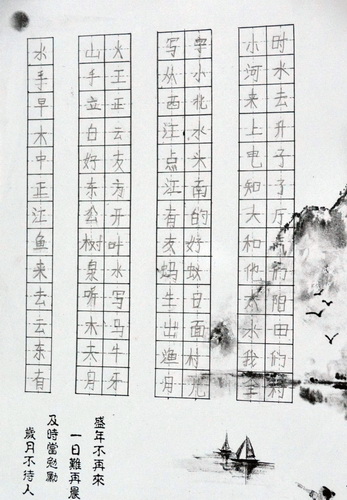 时水去升子了厅阳田的
小河来上电知大和他水我全
字小北水头南的好蚁日面村儿
写从西江点江有友蚂生出渔舟
火王正云友方开叶水写马牛牙
山手立白好东公树泉听木夫舟
水手早木中正江鱼来去云东有
盛年不再來
一日難再晨
及時當勉勵
歲月不待人